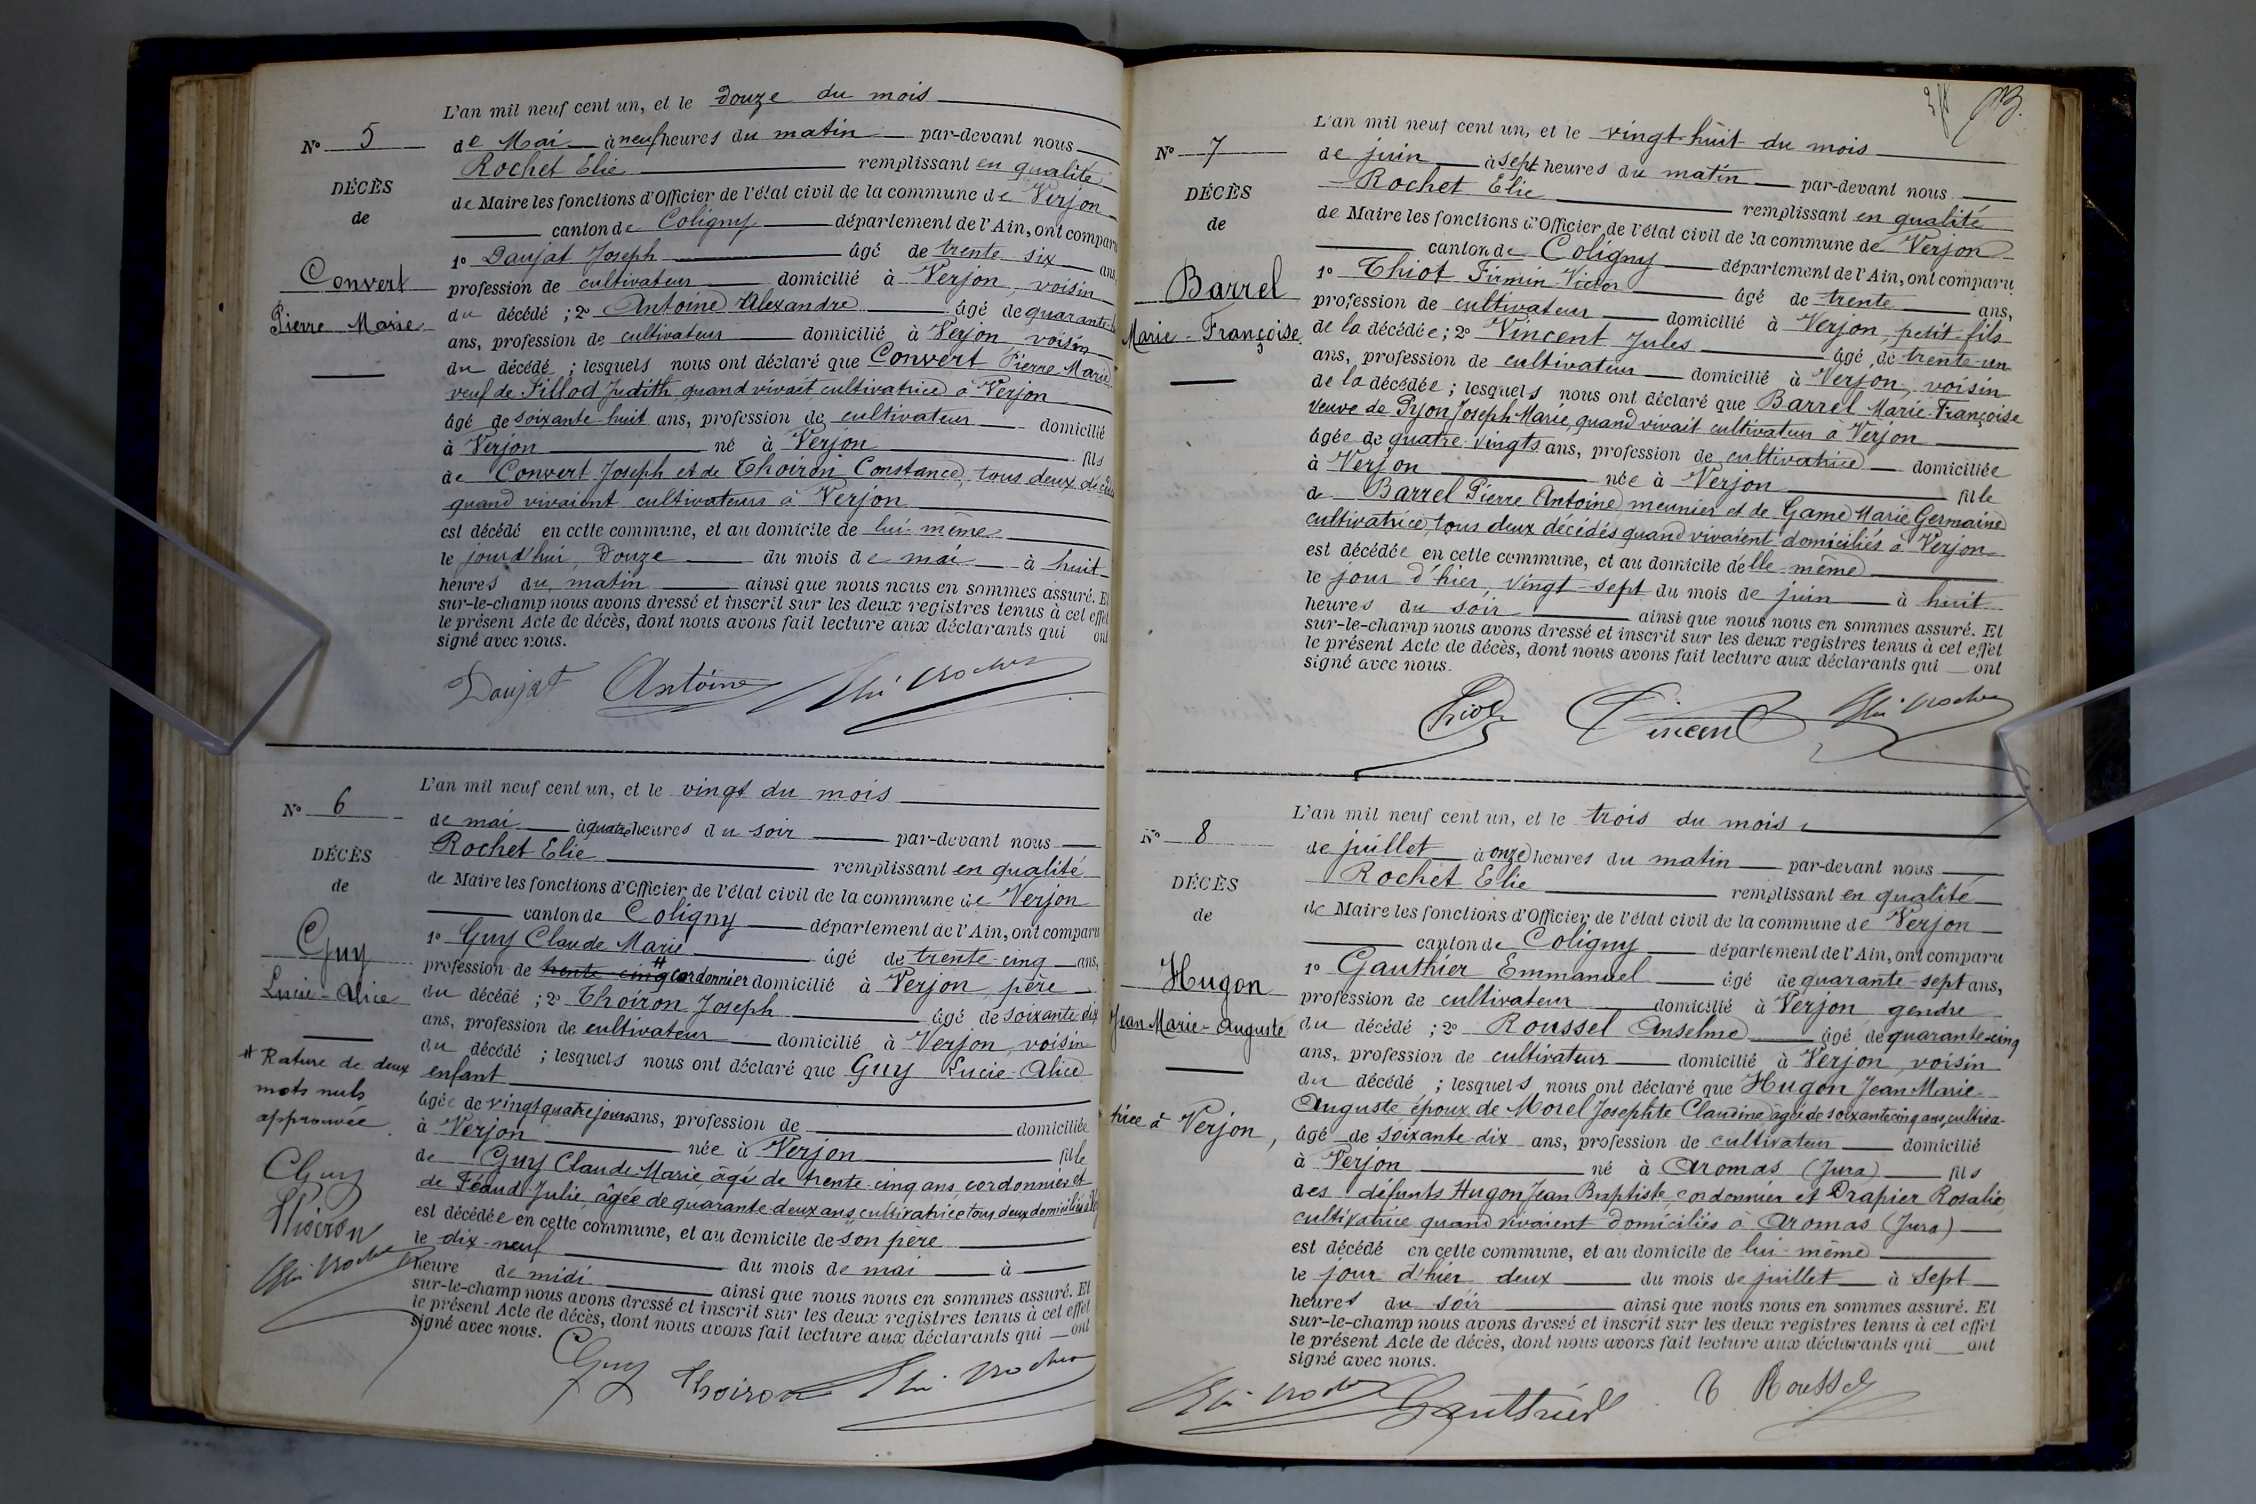 L'an mil neuf cent un, et le Douze du mois
N° 5
de Mai à neuf heures du matin par-devant nous
Rochet Elie remplissant en qualité
DÉCÈS
de Maire les fonctions d'Officier de l'état civil de la commune de Verjon
de
canton de Coligny département de l'Ain, ont comparu
1° Daujat Joseph âgé de trente six ans,
Convert
profession de cultivateur domicilié à Verjon, voisin
Pierre Marie
du décédé ; 2° Antoine Alexandre âgé de quarante
ans, profession de cultivateur domicilié à Verjon voisin
du décédé ; lesquels nous ont déclaré que Convert Pierre Marie
veuf de Pillod Judith, quand vivait cultivatrice à Verjon
âgé de soixante-huit ans, profession de cultivateur domicilié
à Verjon né à Verjon fils
de Convert Joseph et de Thoiron Constance, tous deux décédés
quand vivaient cultivateurs à Verjon
est décédé en cette commune, et au domicile de lui même
le jourd'hui, Douze du mois de mai à huit
heures du matin ainsi que nous nous en sommes assuré. Et
sur-le-champ nous avons dressé et inscrit sur les deux registres tenus à cet effet
le présent Acte de décès, dont nous avons fait lecture aux déclarants qui ont
signé avec nous.
Daujat Antoine Elie Rochet
L'an mil neuf cent un, et le vingt du mois
N° 6
de mai à quatre heures du soir par-devant nous
Rochet Elie remplissant en qualité
DÉCÈS
de Maire les fonctions d'Officier de l'état civil de la commune de Verjon
de
canton de Coligny département de l'Ain, ont comparu
1° Guy Claude Marie âgé de trente-cinq ans,
Guy
profession de trente-cinq # cordonnier domicilié à Verjon père
Lucie-Alice
du décédé ; 2° Thoiron Joseph âgé de soixante-dix
ans, profession de cultivateur domicilié à Verjon, voisin
du décédé ; lesquels nous ont déclaré que Guy Lucie-Alice
enfant
# Rature de deux
mots nuls
approuvée
âgée de vingt quatre jours ans, profession de domiciliée
à Verjon née à Verjon fille
de Guy Claude Marie, âgé de trente-cinq ans, cordonnier et
de Féaud Julie, âgée de quarante-deux ans, cultivatrice tous deux domiciliés à
est décédée en cette commune, et au domicile de son père
le dix-neuf du mois de mai à
heure de midi ainsi que nous nous en sommes assuré. Et
sur-le-champ nous avons dressé et inscrit sur les deux registres tenus à cet effet
le présent Acte de décès, dont nous avons fait lecture aux déclarants qui ont
signé avec nous.
CGuy
Thoiron
Elie Rochet
CGuy Thoiron Elie Rochet
L'an mil neuf cent un, et le vingt-huit du mois
N° 7
de juin à sept heures du matin par-devant nous
Rochet Elie remplissant en qualité
DÉCÈS
de Maire les fonctions d'Officier de l'état civil de la commune de Verjon
de
canton de Coligny département de l'Ain, ont comparu
1° Thiot Firmin Victor âgé de trente ans,
Barrel
profession de cultivateur domicilié à Verjon, petit-fils
Marie-Françoise
de la décédée ; 2° Vincent Jules âgé de trente-un
ans, profession de cultivateur domicilié à Verjon, voisin
de la décédée ; lesquels nous ont déclaré que Barrel Marie-Françoise
veuve de Pyon Joseph Marie, quand vivait cultivateur à Verjon
âgée de quatre-vingts ans, profession de cultivatrice domiciliée
à Verjon née à Verjon fille
de Barrel Pierre Antoine meunier et de Game Marie Germaine
cultivatrice, tous deux décédés quand vivaient domiciliés à Verjon
est décédée en cette commune, et au domicile d'elle-même
le jour d'hier, vingt-sept du mois de juin à huit
heures du soir ainsi que nous nous en sommes assuré. Et
sur-le-champ nous avons dressé et inscrit sur les deux registres tenus à cet effet
le présent Acte de décès, dont nous avons fait lecture aux déclarants qui ont
signé avec nous.
Thiot Vincent Elie Rochet
L'an mil neuf cent un, et le trois du mois
N° 8
de juillet à onze heures du matin par-devant nous
Rochet Elie remplissant en qualité
DÉCÈS
de Maire les fonctions d'Officier de l'état civil de la commune de Verjon
de
canton de Coligny département de l'Ain, ont comparu
1° Gauthier Emmanuel âgé de quarante-sept ans,
Hugon
profession de cultivateur domicilié à Verjon, gendre
Jean Marie-Auguste
du décédé ; 2° Roussel Anselme âgé de quarante-cinq
ans, profession de cultivateur domicilié à Verjon, voisin
du décédé ; lesquels nous ont déclaré que Hugon Jean Marie
Auguste époux de Morel Josephte Claudine âgée de soixante cinq ans, cultiva-
trice à Verjon,
âgé de soixante-dix ans, profession de cultivateur domicilié
à Verjon né à Aromas (Jura) fils
des défunts Hugon Jean Baptiste, cordonnier et Drapier Rosalie,
cultivatrice quand vivaient domiciliés à Aromas (Jura)
est décédé en cette commune, et au domicile de lui-même
le jour d'hier deux du mois de juillet à sept
heures du soir ainsi que nous nous en sommes assuré. Et
sur-le-champ nous avons dressé et inscrit sur les deux registres tenus à cet effet
le présent Acte de décès, dont nous avons fait lecture aux déclarants qui ont
signé avec nous.
Elie Rochet Gauthier Roussel